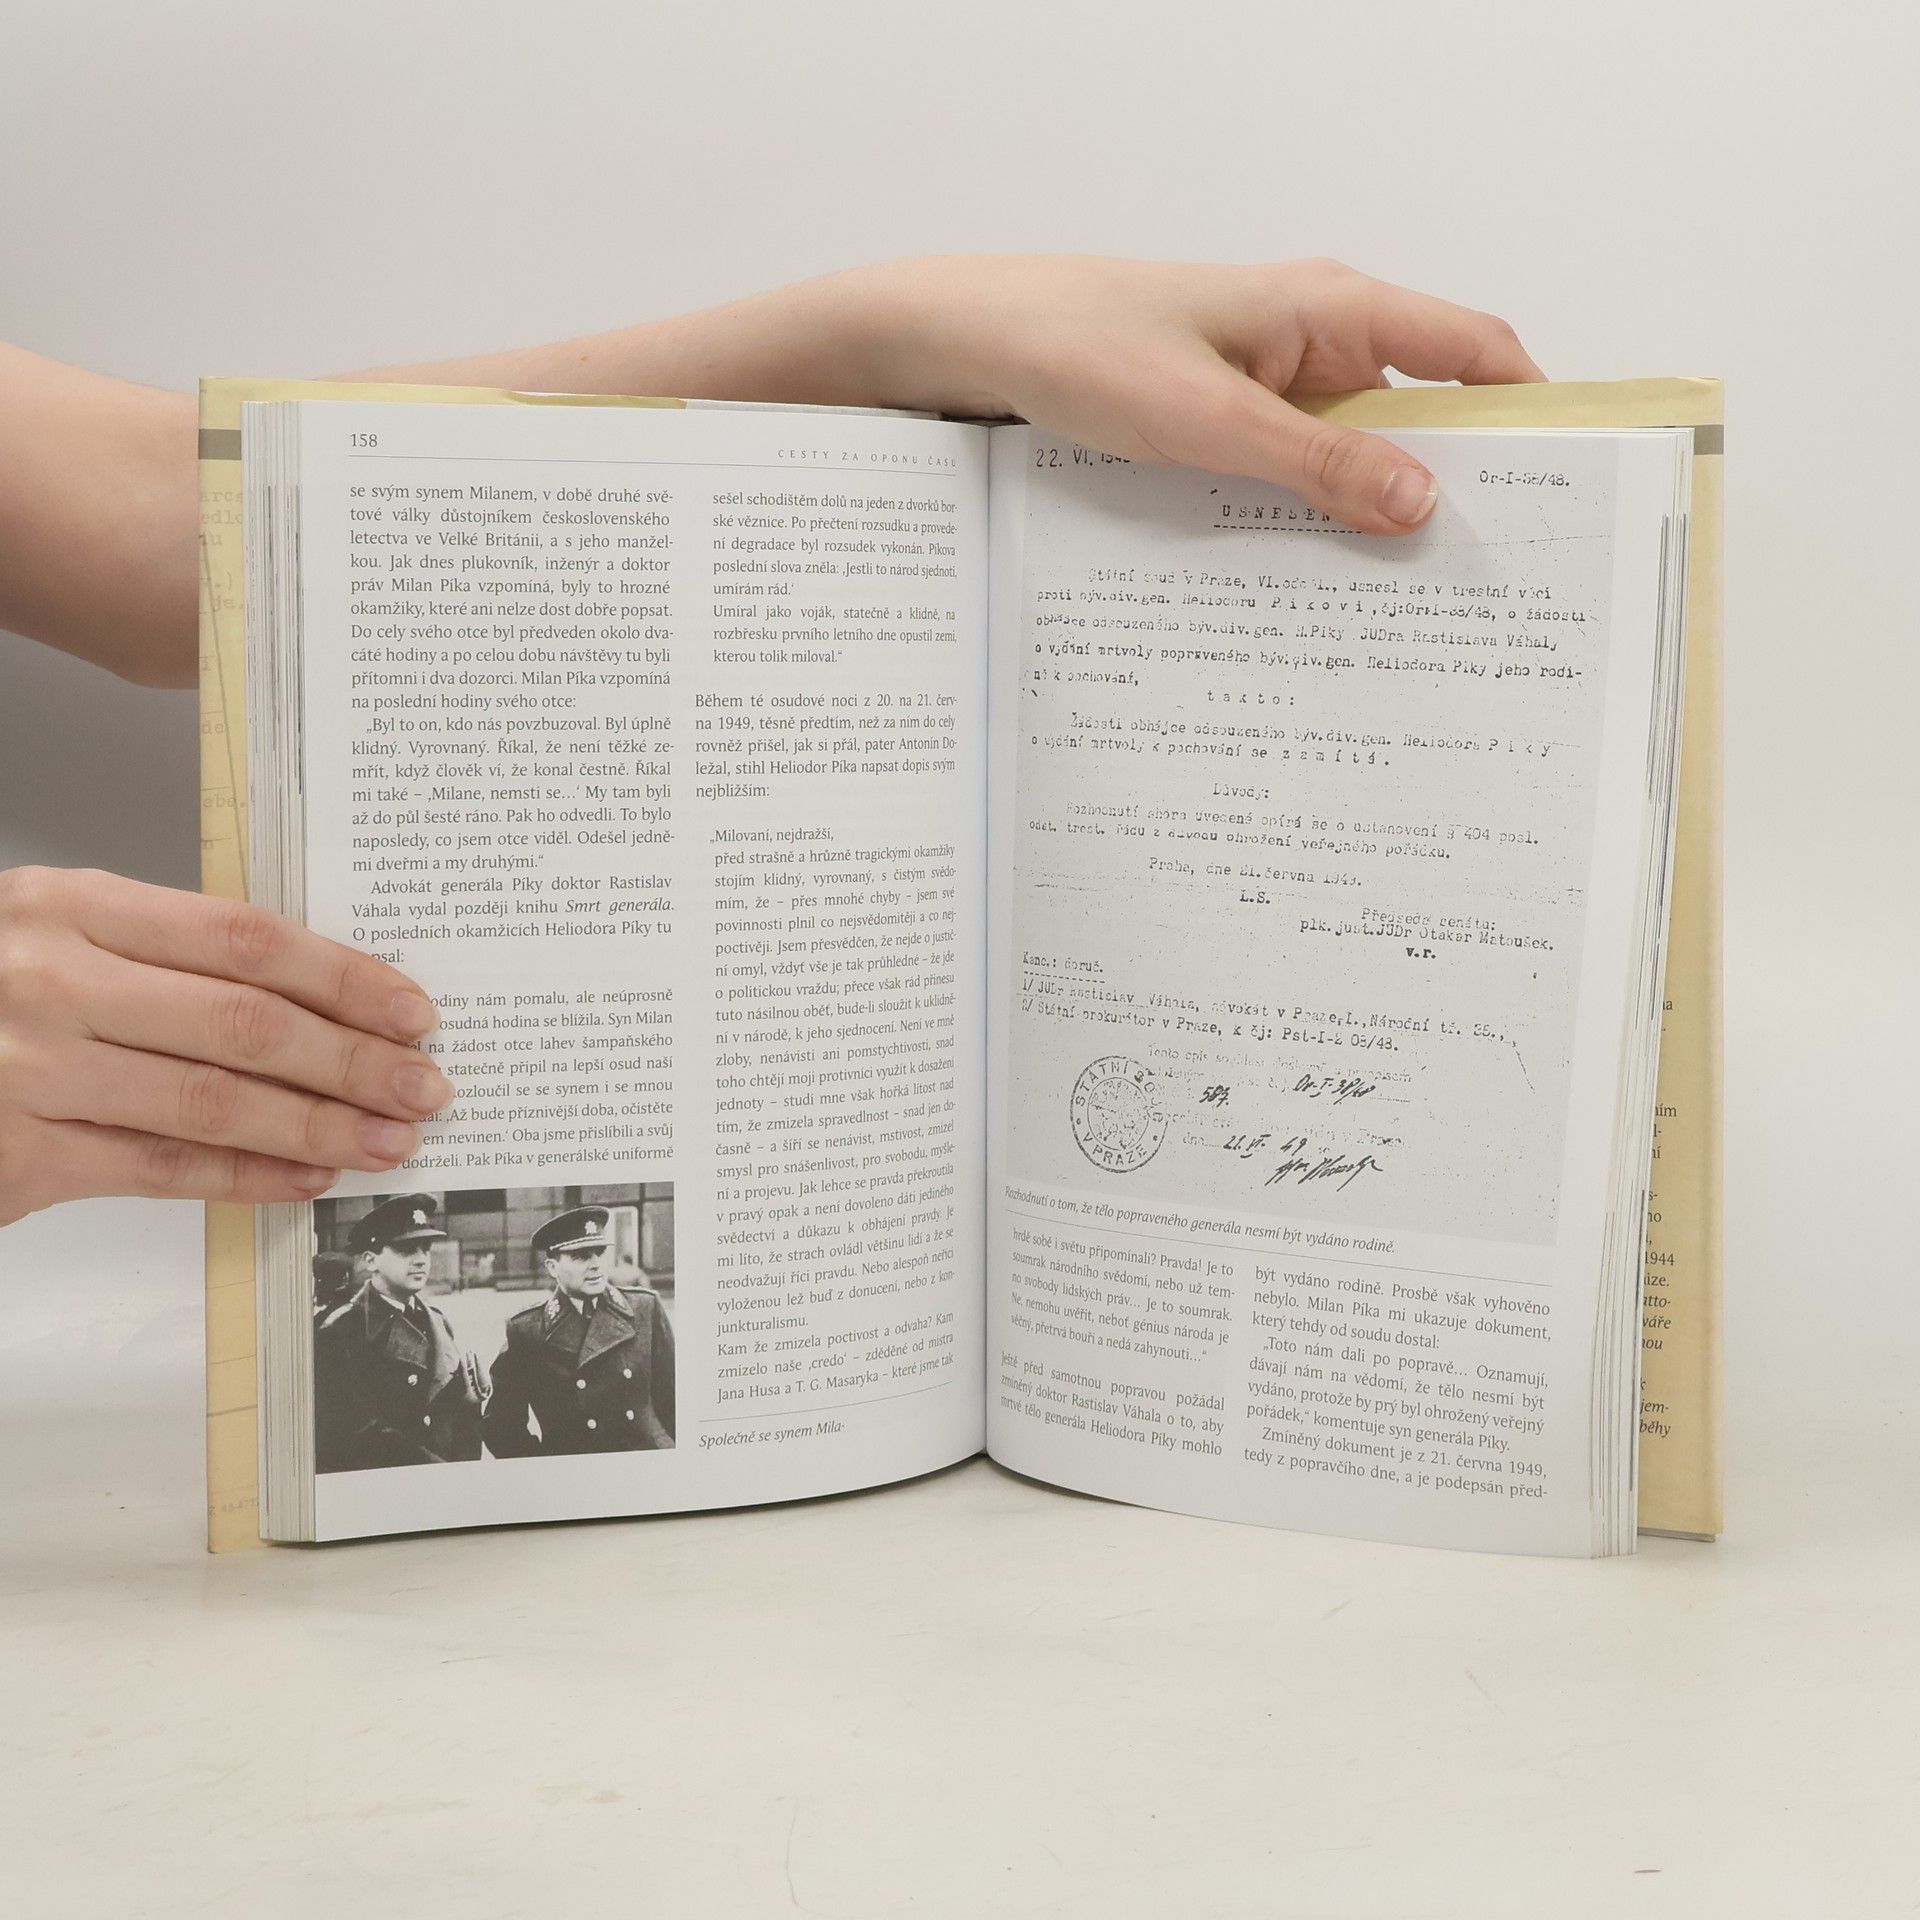 158
CESTY ZA OPONU ČASU
se svým synem Milanem, v době druhé svě-
tové války důstojníkem československého
letectva ve Velké Británii, a s jeho manžel-
kou. Jak dnes plukovník, inženýr a doktor
práv Milan Píka vzpomíná, byly to hrozné
okamžiky, které ani nelze dost dobře popsat.
Do cely svého otce byl předveden okolo dva-
cáté hodiny a po celou dobu návštěvy tu byli
přítomni i dva dozorci. Milan Píka vzpomíná
na poslední hodiny svého otce:
„Byl to on, kdo nás povzbuzoval. Byl úplně
klidný. Vyrovnaný. Říkal, že není těžké ze-
mřít, když člověk ví, že konal čestně. Říkal
mi také – ‚Milane, nemsti se…‘ My tam byli
až do půl šesté ráno. Pak ho odvedli. To bylo
naposledy, co jsem otce viděl. Odešel jedně-
mi dveřmi a my druhými.“
Advokát generála Píky doktor Rastislav
Váhala vydal později knihu Smrt generála.
O posledních okamžicích Heliodora Píky tu
psal:
odiny nám pomalu, ale neúprosně
osudná hodina se blížila. Syn Milan
na žádost otce lahev šampaňského
statečně připil na lepší osud naší
ozloučil se se synem i se mnou
dal: ‚Až bude příznivější doba, očistěte
em nevinen.‘ Oba jsme přislíbili a svůj
dodrželi. Pak Píka v generálské uniformě
sešel schodištěm dolů na jeden z dvorků bor-
ské věznice. Po přečtení rozsudku a provede-
ní degradace byl rozsudek vykonán. Píkova
poslední slova zněla: ‚Jestli to národ sjednotí,
umírám rád.‘
Umíral jako voják, statečně a klidně, na
rozbřesku prvního letního dne opustil zemi,
kterou tolik miloval.“
Během té osudové noci z 20. na 21. červ-
na 1949, těsně předtím, než za ním do cely
rovněž přišel, jak si přál, pater Antonín Do-
ležal, stihl Heliodor Píka napsat dopis svým
nejbližším:
„Milovaní, nejdražší,
před strašně a hrůzně tragickými okamžiky
stojím klidný, vyrovnaný, s čistým svědo-
mím, že – přes mnohé chyby – jsem své
povinnosti plnil co nejsvědomitěji a co nej-
poctivěji. Jsem přesvědčen, že nejde o justič-
ní omyl, vždyť vše je tak průhledné – že jde
o politickou vraždu; přece však rád přinesu
tuto násilnou oběť, bude-li sloužit k uklidně-
ní v národě, k jeho sjednocení. Není ve mně
zloby, nenávisti ani pomstychtivosti, snad
toho chtějí moji protivníci využít k dosažení
jednoty – studí mne však hořká lítost nad
tím, že zmizela spravedlnost – snad jen do-
časně – a šíří se nenávist, mstivost, zmizel
smysl pro snášenlivost, pro svobodu, myšle-
ní a projevu. Jak lehce se pravda překroutila
v pravý opak a není dovoleno dáti jediného
svědectví a důkazu k obhájení pravdy. Je
mi líto, že strach ovládl většinu lidí a že se
neodvažují říci pravdu. Nebo alespoň neříci
vyloženou lež buď z donucení, nebo z kon-
junkturalismu.
Kam že zmizela poctivost a odvaha? Kam
zmizelo naše ‚credo‘ – zděděné od mistra
Jana Husa a T. G. Masaryka – které jsme tak
Společně se synem Mila-
22. VI.
Or-I-38/48.
USNESEN
Státní soud v Praze, VI.odděl., usnesl se v trestní věci
proti býv.div.gen. Heliodoru Pikovi, čj:Or-I-38/48, o žádosti
obhájce odsouzeného býv.div.gen. H.Píky JUDra Rastislava Váhaly
o vydání mrtvoly popraveného býv.div.gen. Heliodora Píky jeho rodi-
ně k pochování,
takto:
Žádosti obhájce odsouzeného býv.div.gen. Heliodora Píky
o vydání mrtvoly k pochování se zamítá.
Důvody:
Rozhodnutí shora uvedené opírá se o ustanovení § 404 posl.
odst. trest. řádu z důvodu ohrožení veřejného pořádku.
Praha, dne 21.června 1949.
L.S.
Předseda senátu:
plk.just.JUDr Otakar Matoušek.
v.r.
Kanc.: doruč.
1/ JUDr Rastislav Váhala, advokát v Praze,I.,Národní tř. 35.,
2/ Státní prokurátor v Praze, k čj: Pst-I-2 08/48.
Tento opis
587.
Or-I-38/48
STÁTNÍ SOUD V PRAZE
dne 21.VI. 49
Rozhodnutí o tom, že tělo popraveného generála nesmí být vydáno rodině.
hrdě sobě i světu připomínali? Pravda! Je to
soumrak národního svědomí, nebo už tem-
no svobody lidských práv… Je to soumrak.
Ne, nemohu uvěřit, neboť génius národa je
věčný, přetrvá bouři a nedá zahynouti…“
Ještě před samotnou popravou požádal
zmíněný doktor Rastislav Váhala o to, aby
mrtvé tělo generála Heliodora Píky mohlo
být vydáno rodině. Prosbě však vyhověno
nebylo. Milan Píka mi ukazuje dokument,
který tehdy od soudu dostal:
„Toto nám dali po popravě… Oznamují,
dávají nám na vědomí, že tělo nesmí být
vydáno, protože by prý byl ohrožený veřejný
pořádek,“ komentuje syn generála Píky.
Zmíněný dokument je z 21. června 1949,
tedy z popravčího dne, a je podepsán před-
1944